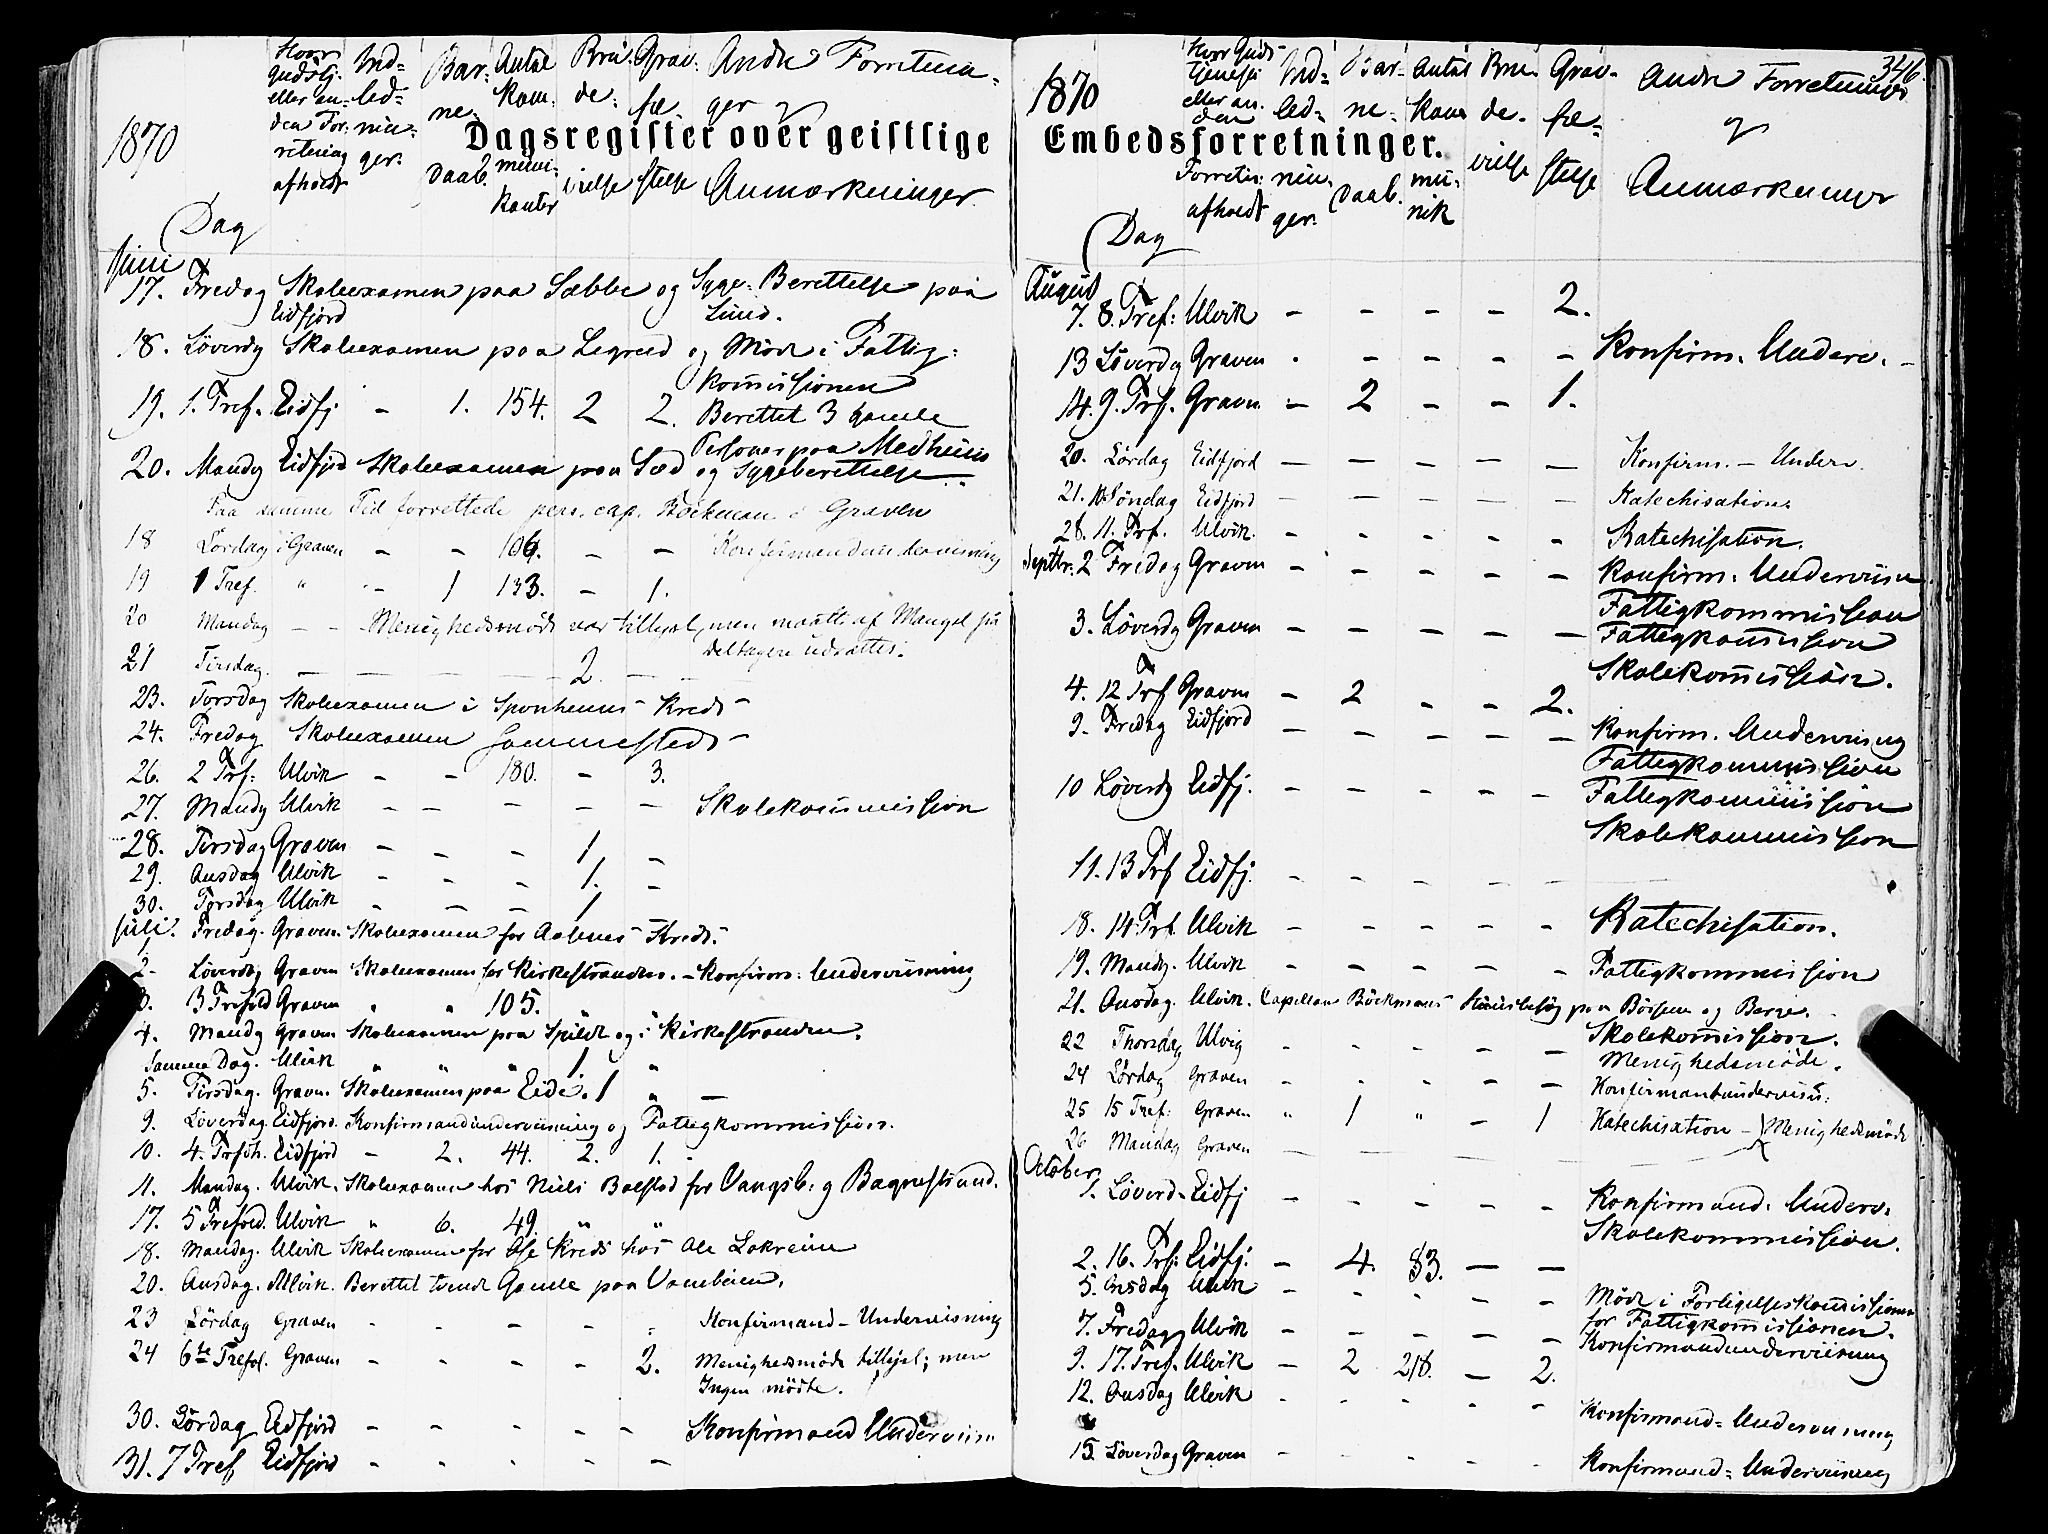 1870
Hvor Gudstj. eller anden Forretning afholdt
Indledninger.
Barnedaab.
Antal Kommunikanter
Brudevielse
Gravfæstelse
Andre Forretninger og Anmærkninger
Dagsregister over geistlige
Dag
Juni
17. Fredag Skoleexamen paa Sæbbe og Syge-Berettelse paa
Eidfjord Lund.
18. Löverdg Skoleexamen paa Legreid og Möde i Fattig-
kommissionen
19. 1. Tref. Eidfj. - 1. 154. 2 2. Berettet 3 gamle
Personer paa Medheim
20. Mandg Eidfjord Skoleexamen paa Sæd og Sygeberettelse.
Paa samme Tid forrettede pers. cap. Böckman i Graven
18 Lördag i Graven - - 106. - - Konfirmandundervisning
19 1 Tref. " - 1 133. - 1.
20 Mandag - - Menighedsmöde var tillyst, men maatte af Mangel paa
Deltagere udsættes.
21 Tirsdag. - - - 2 - -
23. Torsdag Skoleexamen i Sponheims Kreds -
24. Fredag Skoleexamen sammesteds -
26. 2 Trf: Ulvik - - 180. - 3.
27. Mandg Ulvik - - - - - Skolekommission
28. Tirsdag Graven - - - 1 -
29. Onsdag Ulvik - - - 1. -
30. Torsdag Ulvik - - - 1
Juli.
1. Fredag. Graven. Skoleexamen for Aalvnes Kreds.
2. Löverdg Graven Skoleexamen for Kirkestranden. - Konfirm: Underviisning
3. 3 Trefold Graven " " 105.
4. Mandg Graven Skoleexamen paa Spildt og i Kirkestranden.
Samme Dag. Ulvik " " " 1. "
5. Tirsdag. Graven. Skoleexamen paa Eide. 1 " -
9. Löverdag. Eidfjord. Konfirmandunderviisning og Fattigkommission.
10. 4. Trfth. Eidfjord - 2. 44. 2. 1. -
11. Mandag. Ulvik. Skoleexamen hos Niels Bolstad for Vangsb. og Bagnestrand.
17. 5 Trefold. Ulvik " 6. 49. " "
18. Mandag. Ulvik Skoleexamen for Ose Kreds hos Ole Lekreim
20. Onsdag. Ulvik. Berettet tvende Gamle paa Vambeien.
23 Lördag Graven - - - - - Konfirmand-Undervisning
24 6te Trefol. Graven - - - - 2. Menighedsmöde tillyst; men
Ingen mödte.
30. Lördag Eidfjord - - - - - Konfirmand Underviisn
31. 7 Tref Eidfjord - - - - -
346.
1870
Hvor Gudstjeneste eller anden Forretn: afholdt
Indledninger.
Barnedaab.
Antal Kommunik
Brudevielse
Gravfæstelse
Andre Forretninger og Anmærkninger
Embedsforretninger.
Dag
August
7. 8. Tref: Ulvik - - - - 2.
13 Löverdg Graven - - - - - Konfirm. Underv. -
14. 9. Trf. Graven - 2 - - 1.
20. Lördag Eidfjord - - - - - Konfirm. - Underv.
21. 10. Söndag Eidfjord - - - - - Katechisation.
28. 11. Trf. Ulvik. - - - - - Katechisation.
Septbr. 2 Fredag Graven - - - - - Konfirm. Underviisn.
Fattigkommission
3. Löverdg Graven - - - - - Fattigkommission
Skolekommission.
4. 12 Trf Graven - 2 - - 2.
9. Fredag Eidfjord - - - - - Konfirm. Undervisning
Fattigkommission
10 Löverdg Eidfj. - - - - - Fattigkommission
Skolekommission
11. 13 Trf Eidfj. - - - - -
18. 14. Trf. Ulvik - - - - - Katechisation.
19. Mandg. Ulvik - - - - - Fattigkommission
21. Onsdag. Ulvik. Capellan Böckmans Huusbesög paa Börsem og Berge.
22 Thorsdag Ulvig - - - - - Skolekommission.
Menighedsmöde.
24 Lördag Graven - - - - - Konfirmantundervisn:
25 15 Tref: Graven " 1 " - 1 Katechisation - Menighedsmöde
26 Mandag Graven - - - - -
October
1. Löverd- Eidfj - - - - - Konfirmand. Underv.
Skolekommission.
2. 16. Trf: Eidfj. - 4. 83. - -
5. Onsdag Ulvik - - - - - Möde i Forligelseskommissionen
for Fattigkommissionen.
7. Fredag Ulvik - - - - - Konfirmandunderviisning
9. 17. Tref. Ulvik - 2 218. - 2.
12. Onsdag Ulvik - - - - - Konfirmand-Undervisning
15. Löverdag Graven - - - - - Konfirmand-Underviisning